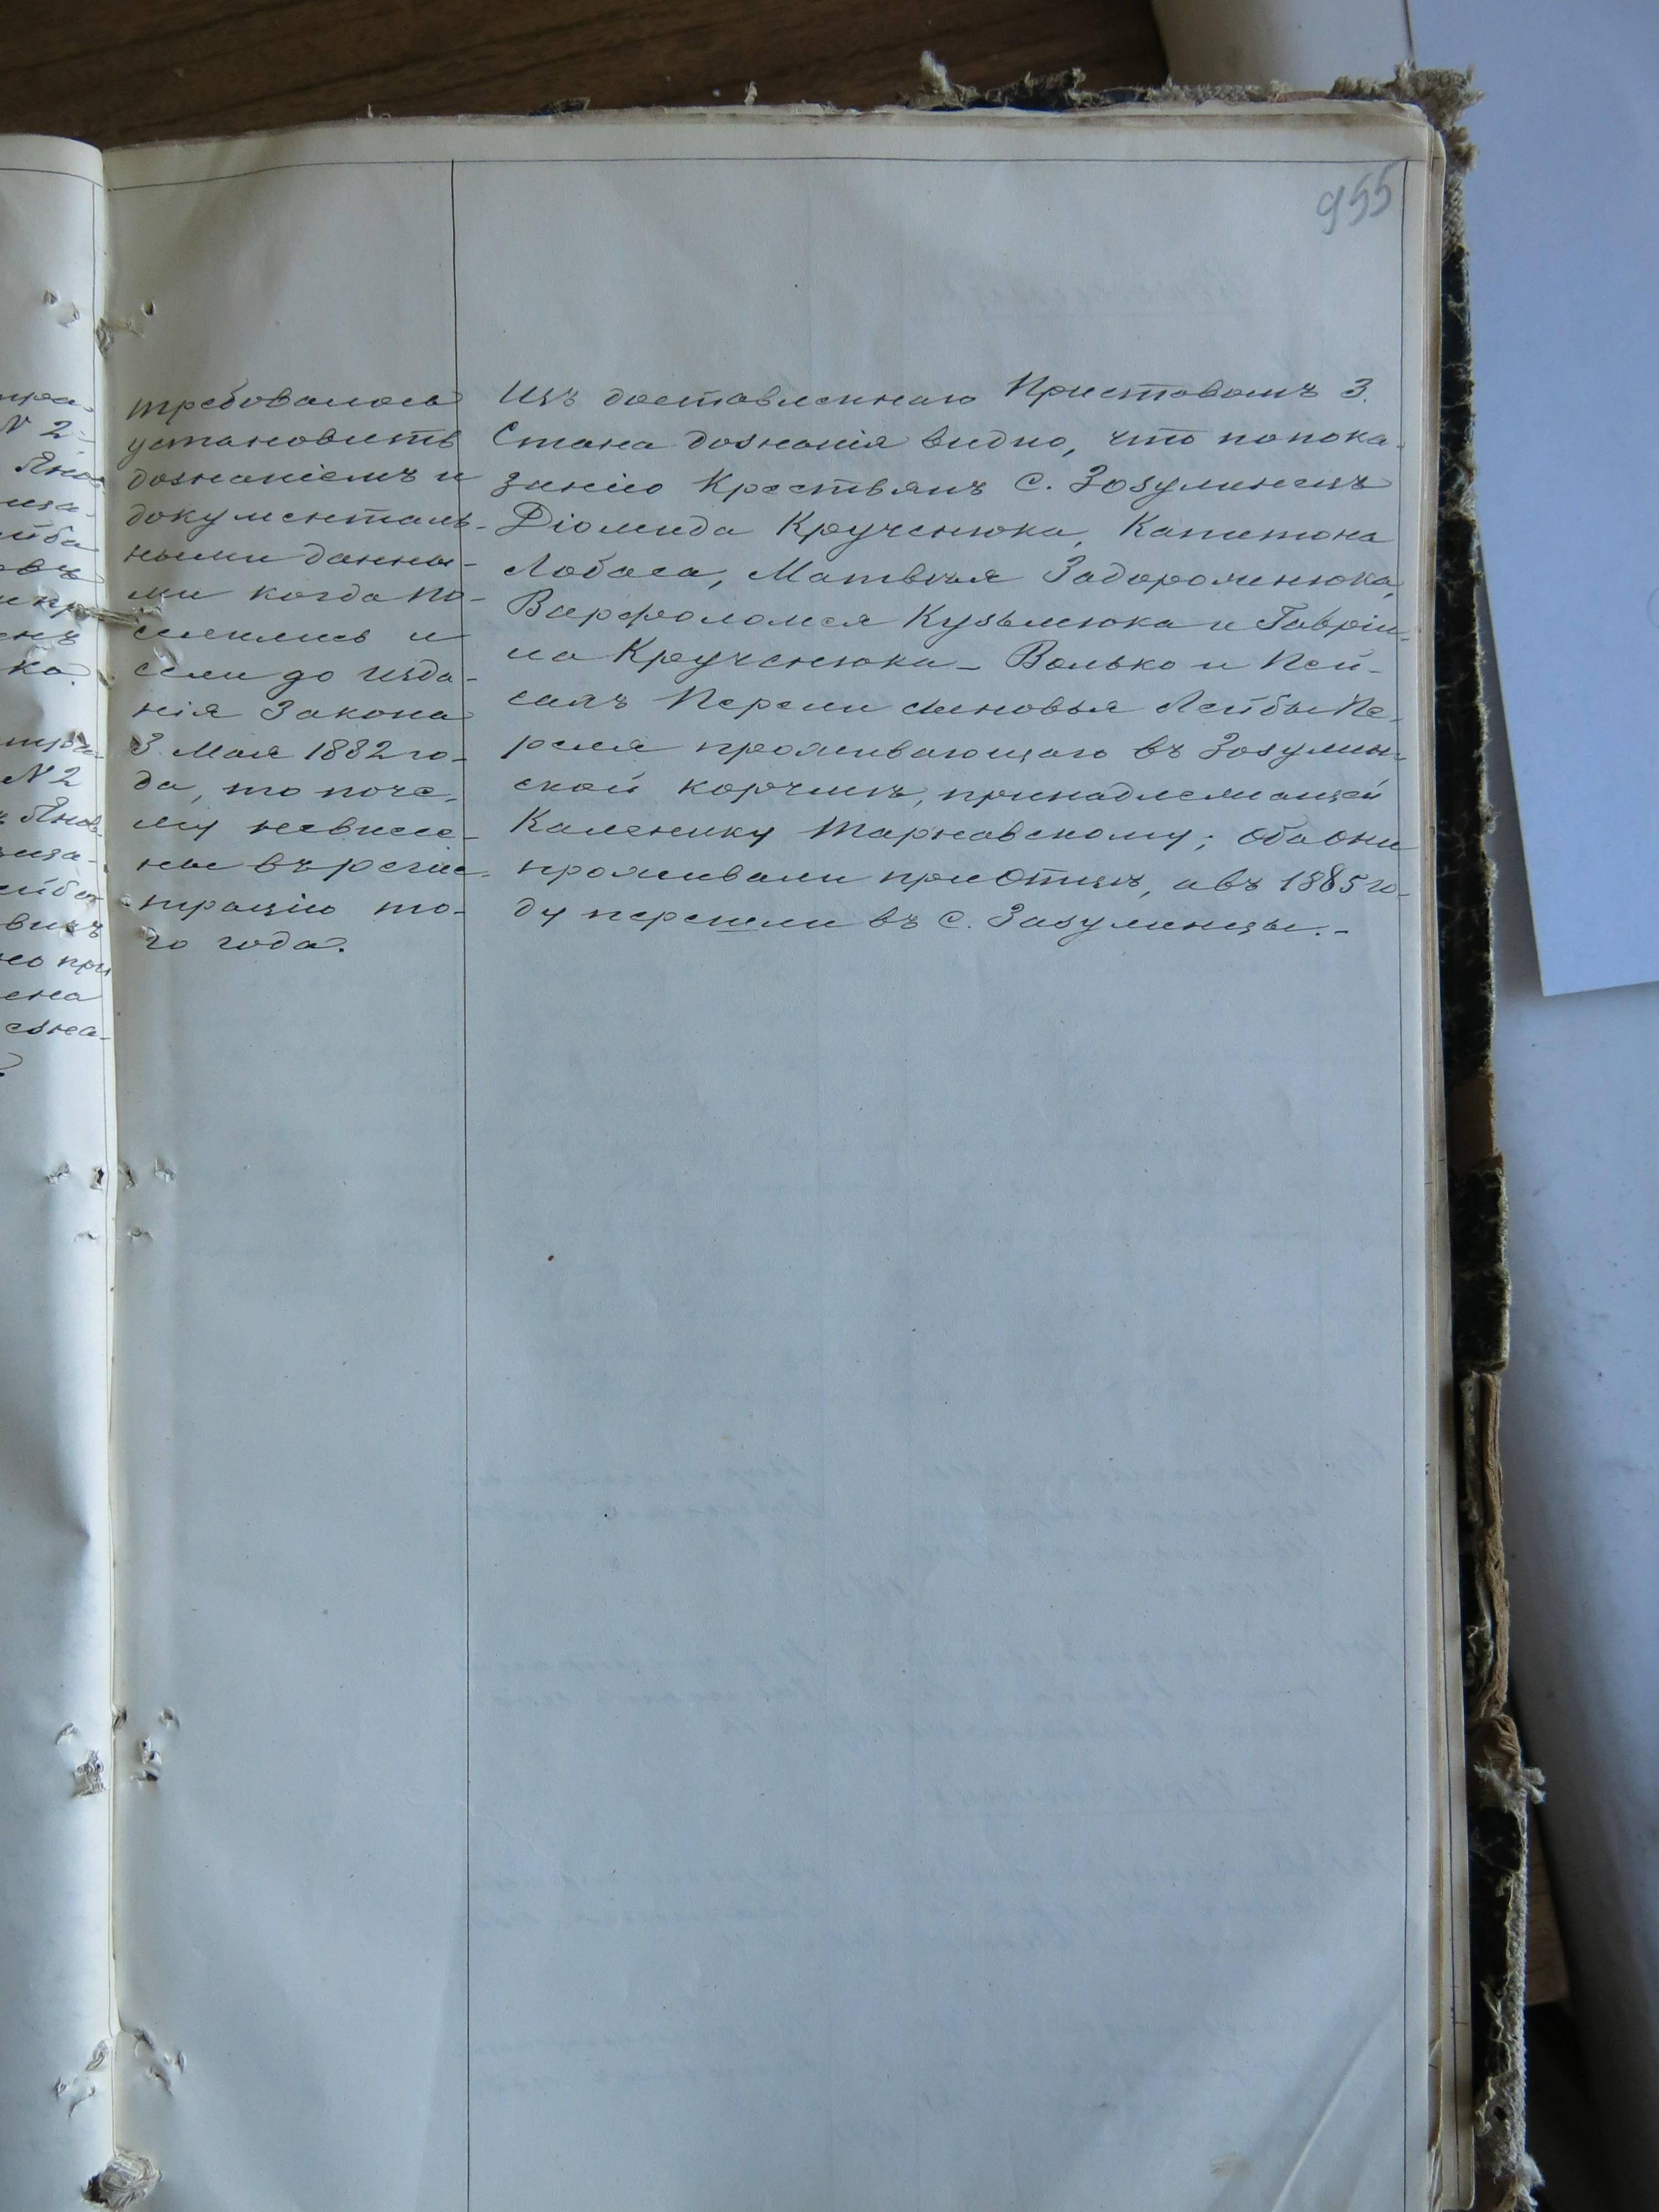 955
требовалось
установить
дознаніемъ и
документаль-
ными данны-
ми когда по-
селились и
если до изда-
нія Закона
3 Мая 1882 го-
да, то поче-
му невнесе-
ны въ регис-
трацію то-
го года.
Изъ доставленнаго Приставомъ 3.
Стана дознанія видно, что по пока-
занію Крестьянъ С. Зозулинецъ
Діомида Крученюка, Капитона
Лобаса, Матвѣя Задорожнюка,
Варфоломея Кузьмюка и Гавріи-
ла Крученюка - Волько и Пей-
сахъ Перели сыновья Лейбы Пе-
реля проживающаго въ Зозулин-
ской корчмѣ, принадлежащей
Каленику Тарнавскому; оба они
проживали при Отцѣ, а въ 1885 го-
ду перешли въ с. Зозулинцы. -
тра-
N 2-
ка.
N 2
ена